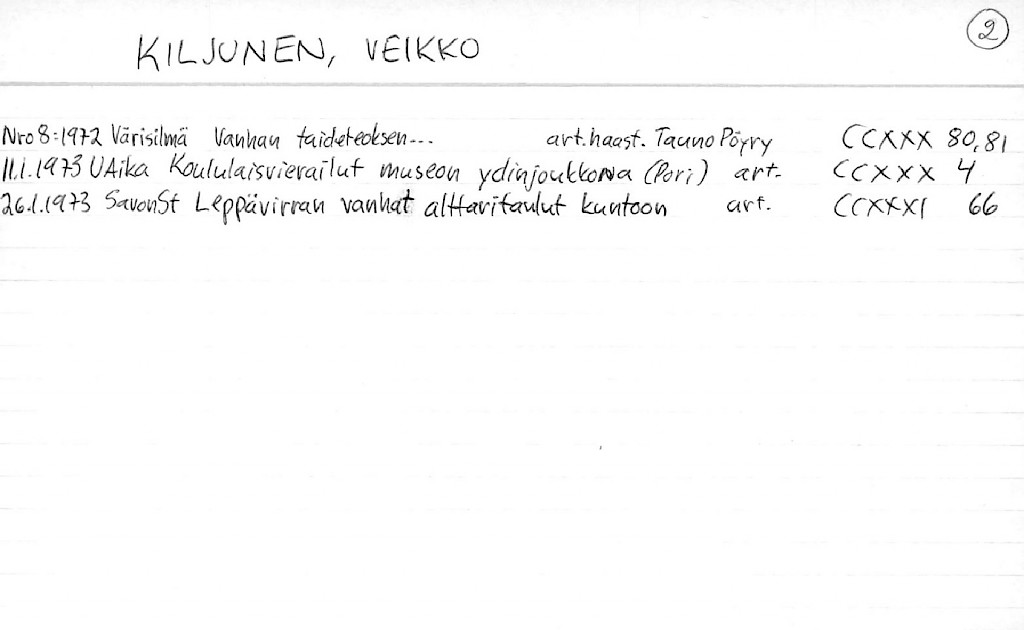 2
KILJUNEN, VEIKKO
Nro 8:1972 Värisilmä Vanhan taideteoksen... art.haast. Tauno Pöyry CCXXX 80,81
11.1.1973 UAika Koululaisvierailut museon ydinjoukkona (Pori) art. CCXXX 4
26.1.1973 SavonSt Leppävirran vanhat alttaritaulut kuntoon art. CCXXXI 66